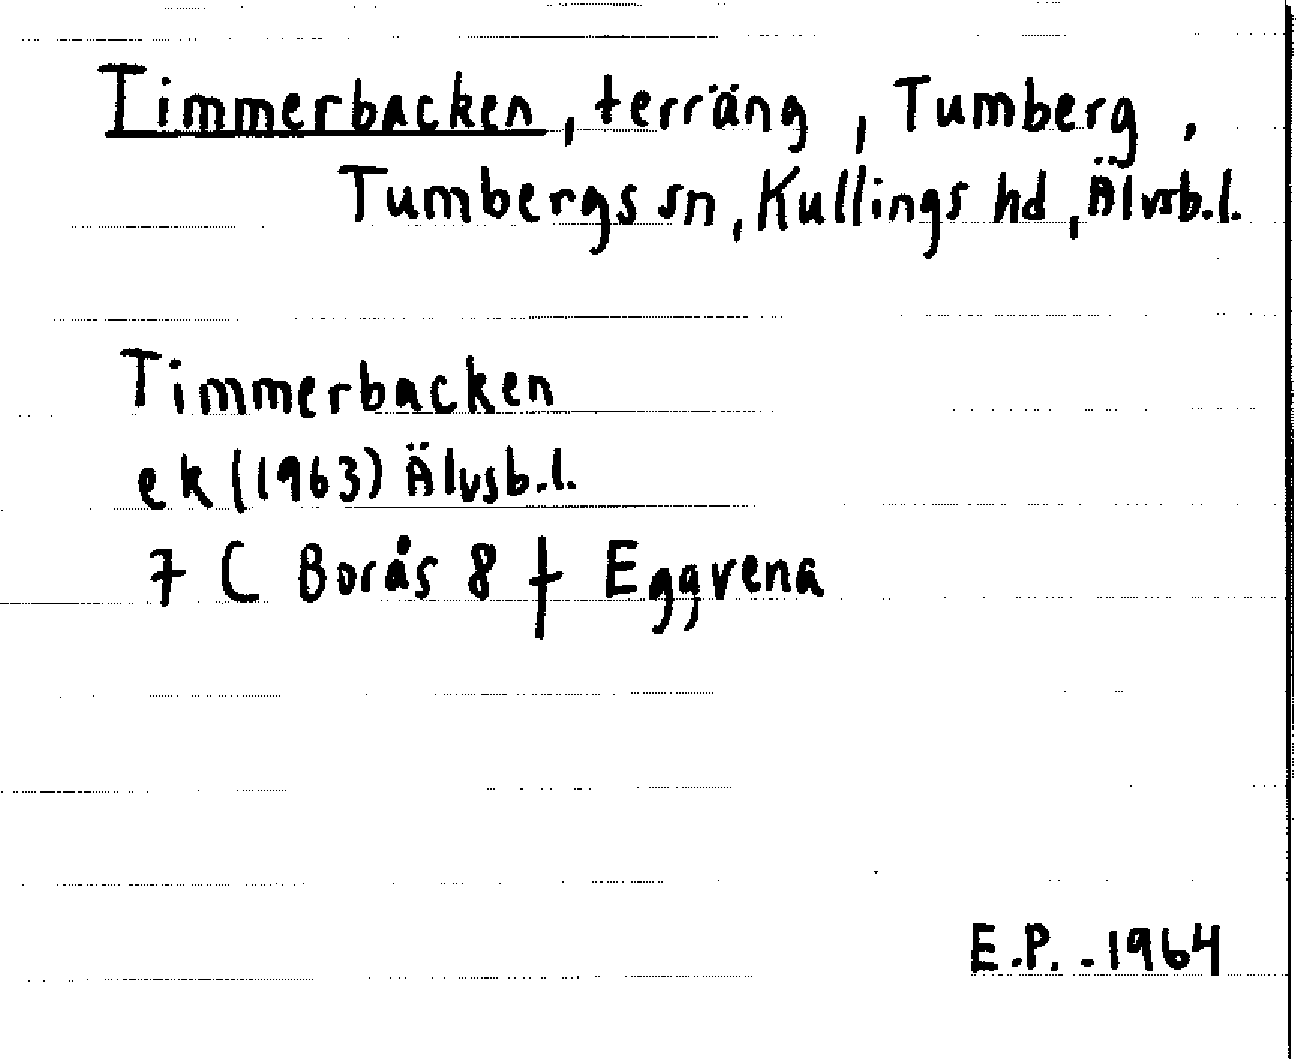 Timmerbacken, terräng, Tumberg,
Tumbergs sn, Kullings hd, Älvsb.l.
Timmerbacken
ek (1963) Älvsb.l.
7 C Borås 8 f Eggvena
E.P. - 1964